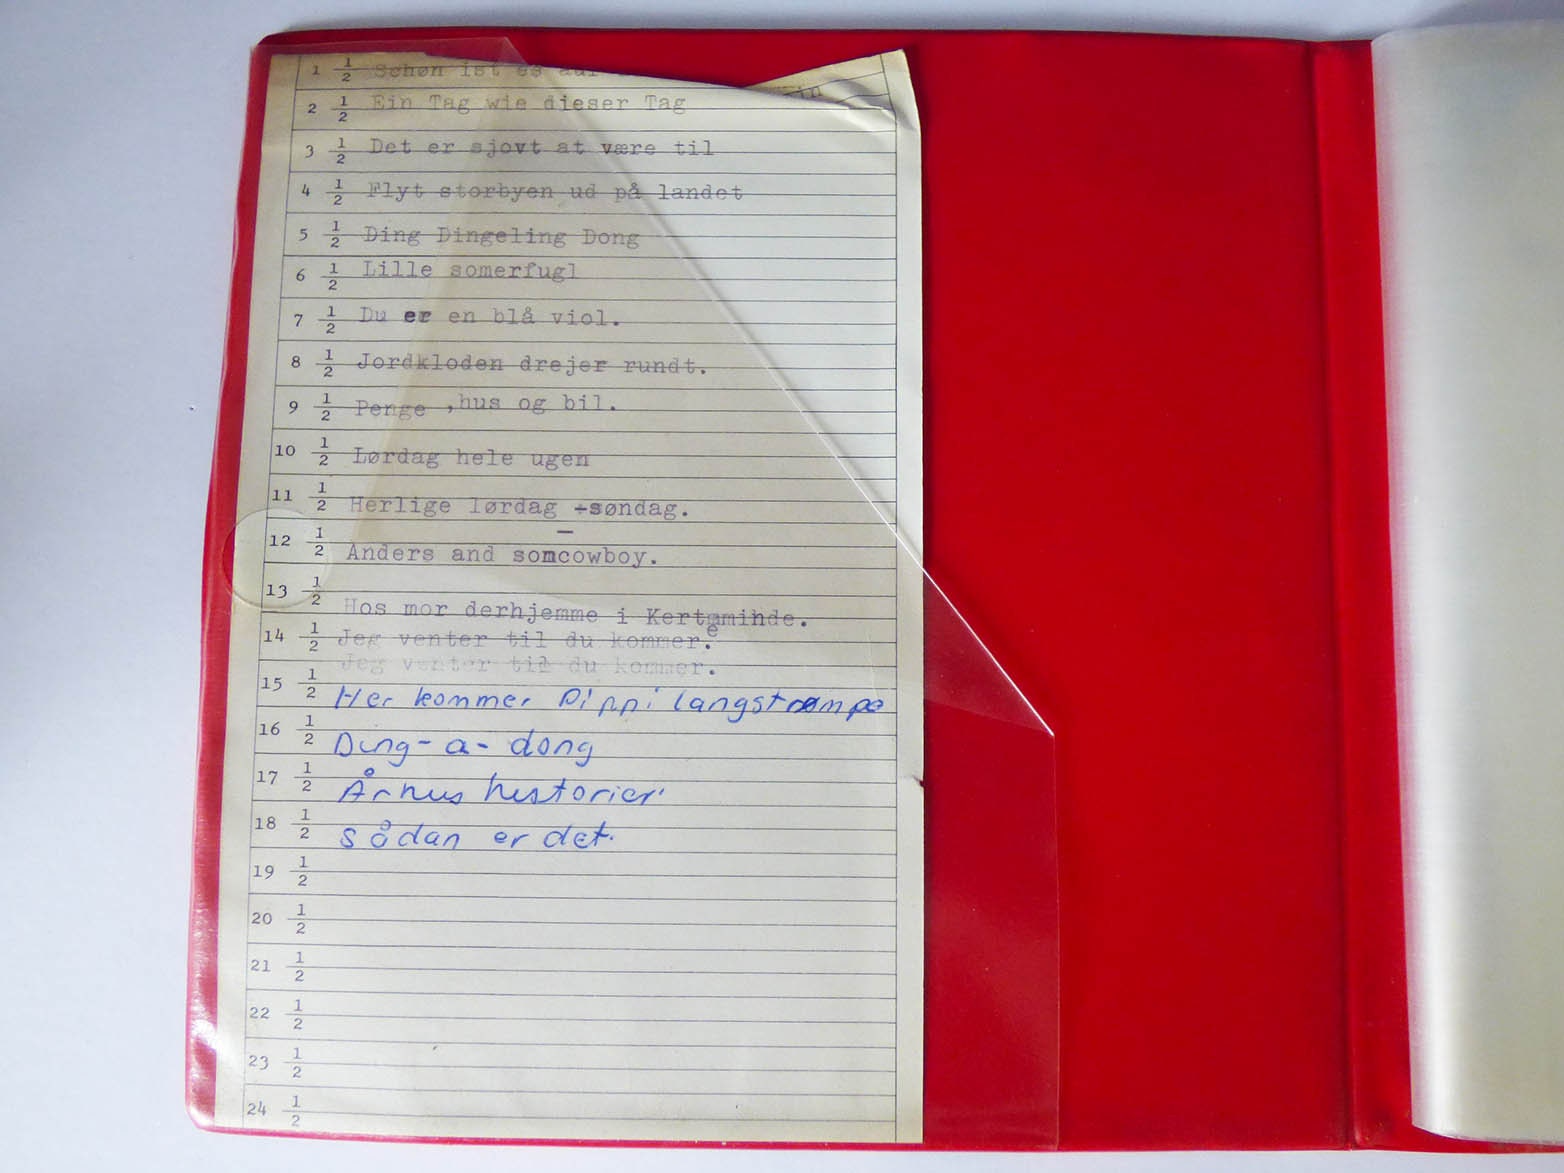 1 1/2 Schøn ist es auf
in
2 1/2 Ein Tag wie dieser Tag
3 1/2 Det er sjovt at være til
4 1/2 Flyt storbyen ud på landet
5 1/2 Ding Dingeling Dong
6 1/2 Lille somerfugl
7 1/2 Du er en blå viol.
8 1/2 Jordkloden drejer rundt.
9 1/2 Penge ,hus og bil.
10 1/2 Lørdag hele ugen
11 1/2 Herlige lørdag -søndag.
12 1/2 Anders and somcowboy.
13 1/2 Hos mor derhjemme i Kerteminde.
14 1/2 Jeg venter til du kommer.
Jeg venter til du kommer.
15 1/2 Her kommer Pippi langstrømpe
16 1/2 Ding-a-dong
17 1/2 Århus historier
18 1/2 sådan er det.
19 1/2
20 1/2
21 1/2
22 1/2
23 1/2
24 1/2